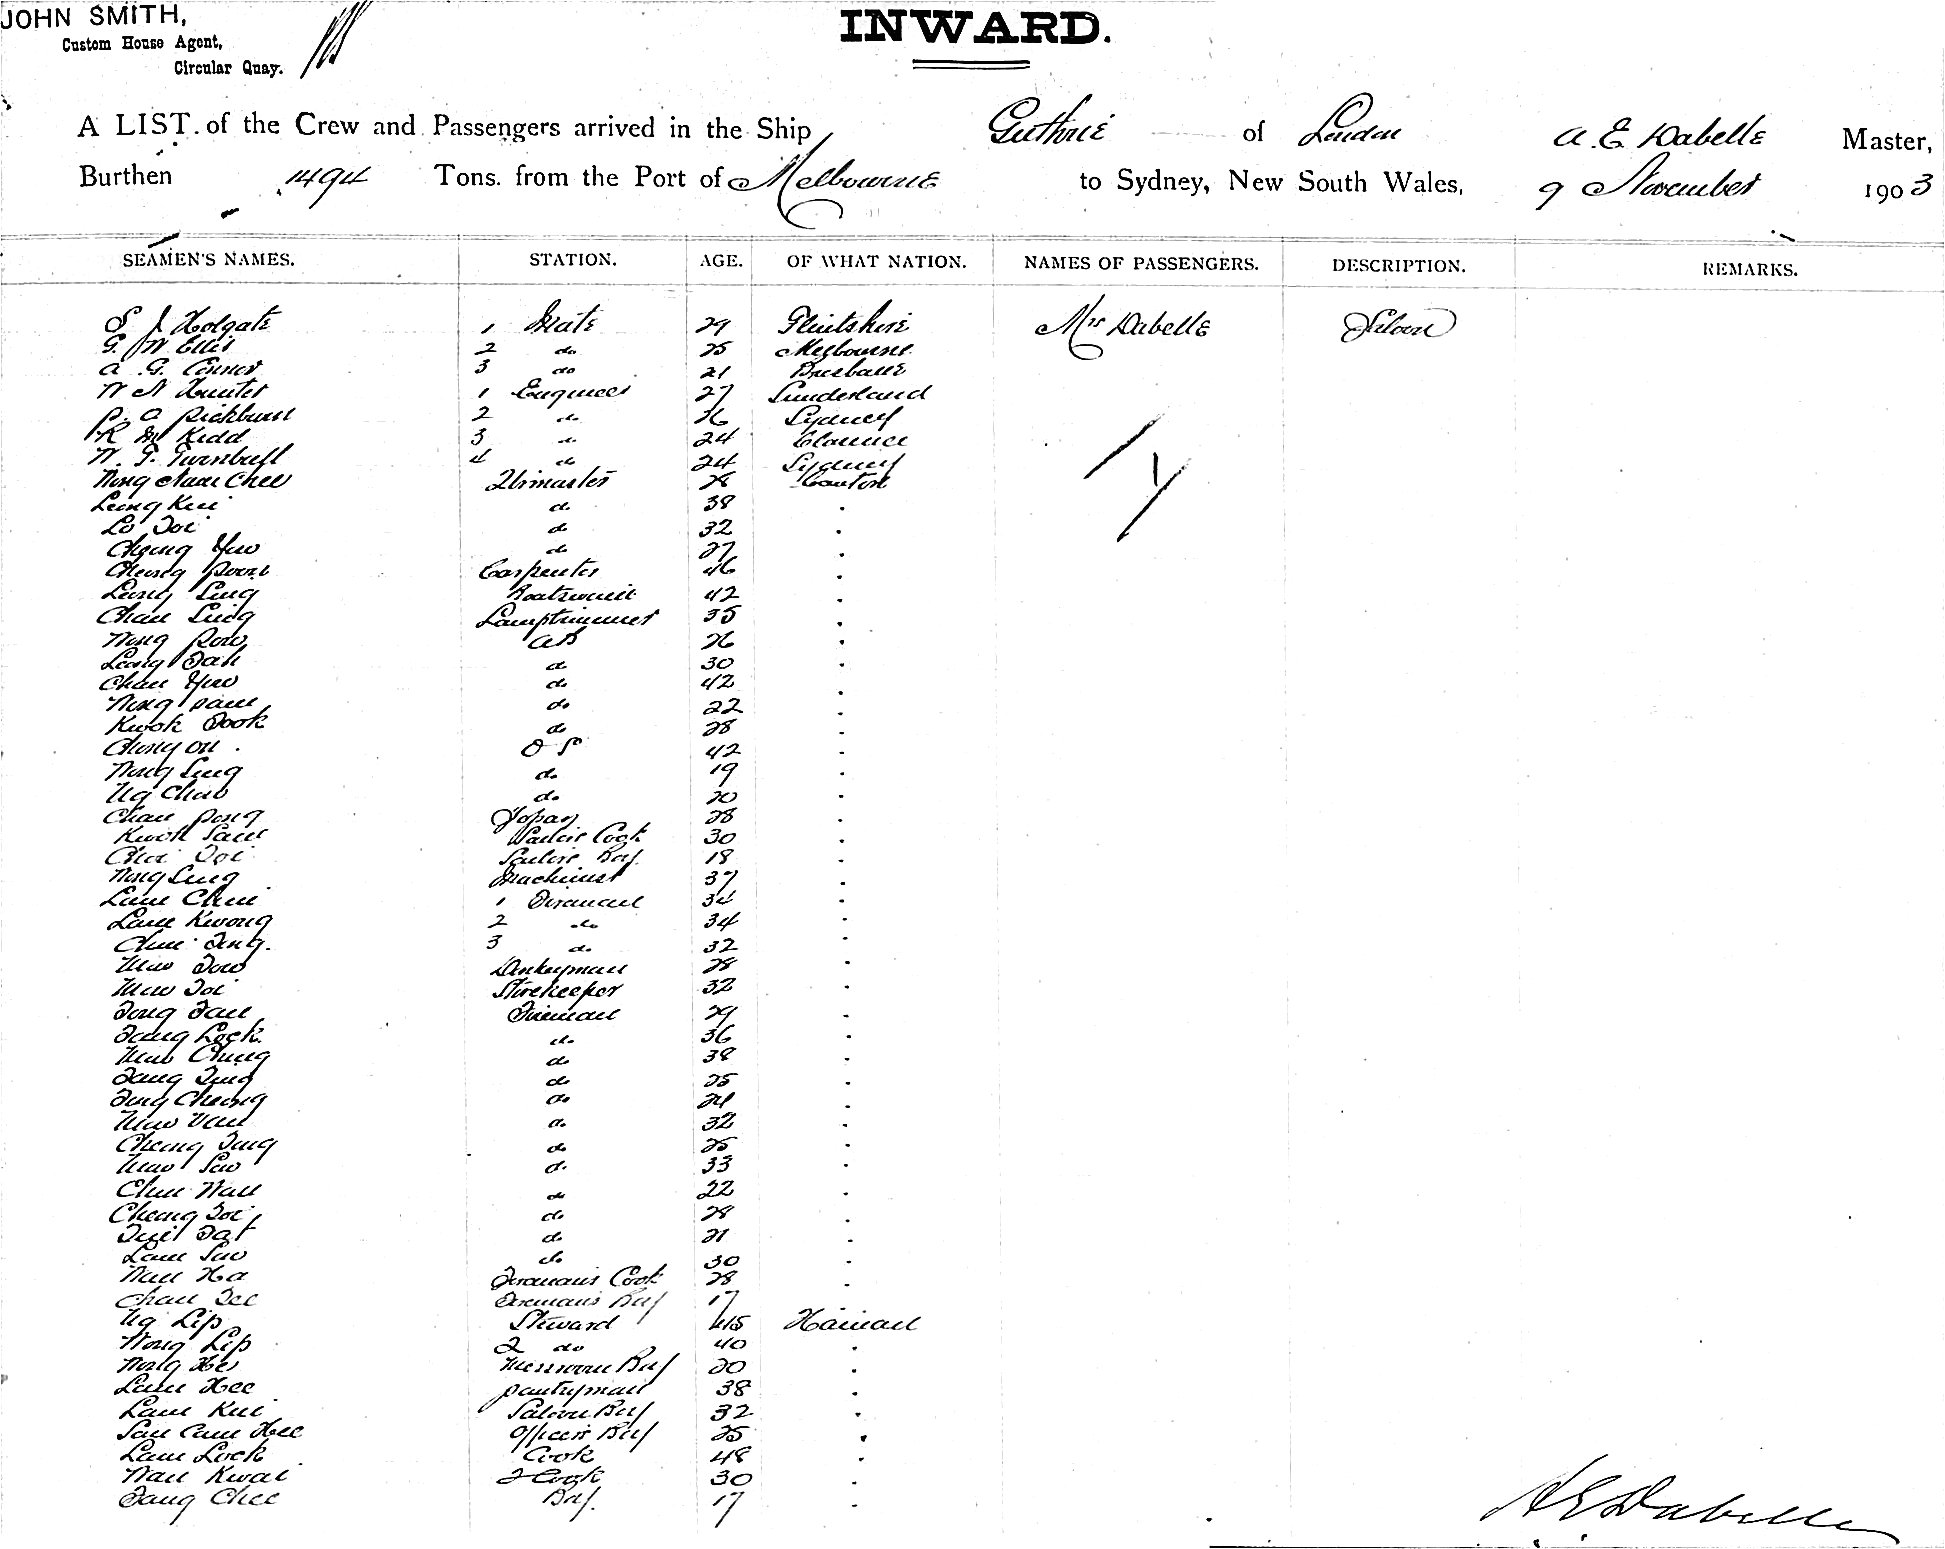 JOHN SMITH,
Custom House Agent,
Circular Quay.
INWARD.
A LIST of the Crew and Passengers arrived in the Ship Guthrie of London A. E. Dabelle Master,
Burthen 1494 Tons. from the Port of Melbourne to Sydney, New South Wales, 9 November 1903
SEAMEN'S NAMES. STATION. AGE. OF WHAT NATION. NAMES OF PASSENGERS. DESCRIPTION. REMARKS.
S J Holgate 1 Mate 29 Flintshire Mrs Dabelle Saloon
G. W Ellis 2 do 25 Melbourne
A. G. Connor 3 do 21 Brisbane
W N Hunter 1 Engineer 27 Sunderland
P. A Pickburn 2 do 26 Sydney
R M Kidd 3 do 24 Clarence
W. T. Turnbull 4 do 24 Sydney
Wong Chee 28 Canton
Leong Kui do 38 "
Lo Toi do 32 "
Cheong Yuo do 27 "
Cheong Poon Carpenter 46 "
Leong Ling Boatswain 42 "
Chan Ling Lamptrimmer 35 "
Wong Pow AB 26 "
Leong Tah do 30 "
Chan Yuo do 42 "
Wong do 22 "
Kwok Took do 28 "
Chung On O S 42 "
Wong Ling do 19 "
Ng Chuo do 20 "
Chan Pong 28 "
Kwok Sam Sailors Cook 30 "
Choi Toi Sailors Boy 18 "
Wong Ling Machinist 37 "
Lam Chui 1 Fireman 34 "
Lam Kwong 2 do 34 "
Chui Ting. 3 do 32 "
Mao Tow Donkeyman 28 "
Mao Toi Storekeeper 32 "
Tong Tan Fireman 29 "
Tang Lock. do 36 "
Mao Chung do 38 "
Tang Ting do 25 "
Tung Cheong do 24 "
Mao do 32 "
Cheong Tung do 25 "
Mao Suo do 33 "
Chui Wan do 22 "
Cheong Toi do 28 "
Tat do 21 "
Lam Suo do 30 "
Wan Ha Firemans Cook 28 "
Chan Tee Firemans Boy 17 "
Ng Lip Steward 45 Hainan
Wong Lip 2 do 40 "
Wong Ho Messroom Boy 20 "
Lam Hee Pantryman 38 "
Lam Kui Saloon Boy 32 "
San Cam Hee Officers Boy 25 "
Lam Lock Cook 48 "
Wan Kwai 2 Cook 30 "
Tang Chee Boy. 17 "
A E Dabelle